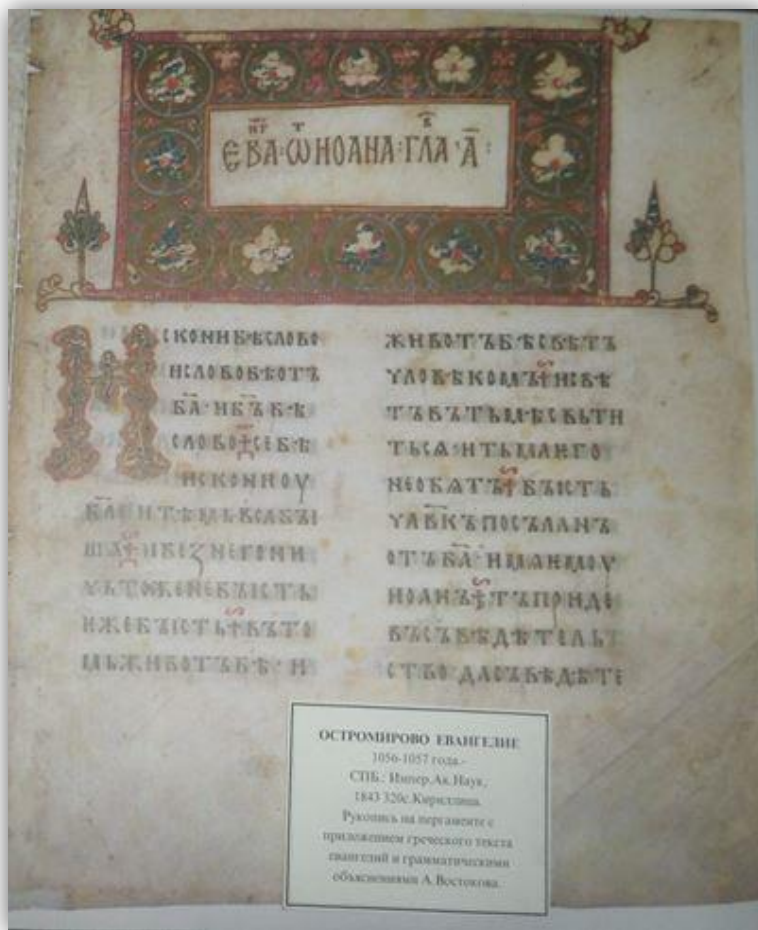 ЕВА҃НГ · Ѿ ИОАНА · ГЛАВ · А҃ ·
Искони бѣ слово
и слово бѣ отъ
б҃а · и б҃ъ бѣ
слово · се бѣ
искони оу
б҃а · и тѣмь вса бꙑ
ша · и без него ни
чьтоже не бꙑсть
иже бꙑсть · въ то
мь животъ бѣ · и
животъ бѣ свѣтъ
чловѣкомъ · и свѣ
тъ въ тьмѣ свьти
тьсѧ · и тьма ѥго
не обѧтъ · бꙑсть
чл҃вкъ посъланъ
отъ б҃а · имѧ ѥмоу
иоанъ · тъ приде
въ съвѣдѣтель
ство да съвѣдѣте
ОСТРОМИРОВО ЕВАНГЕЛИЕ
1056-1057 года.-
СПБ.: Импер.Ак.Наук,
1843 320с.Кириллица.
Рукопись на пергаменте с
приложением греческого текста
евангелий и грамматическими
объяснениями А.Востокова.